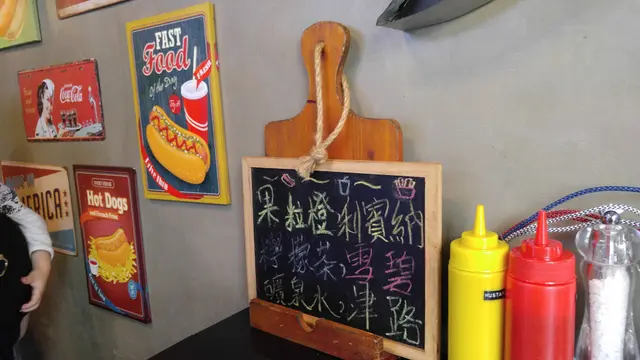 FAST
Food
Of the Day
Coca-Cola
AMERICA
Hot Dogs
果粒橙 利賓納
檸檬茶, 雪碧
礦泉水, 津路
MUSTARD